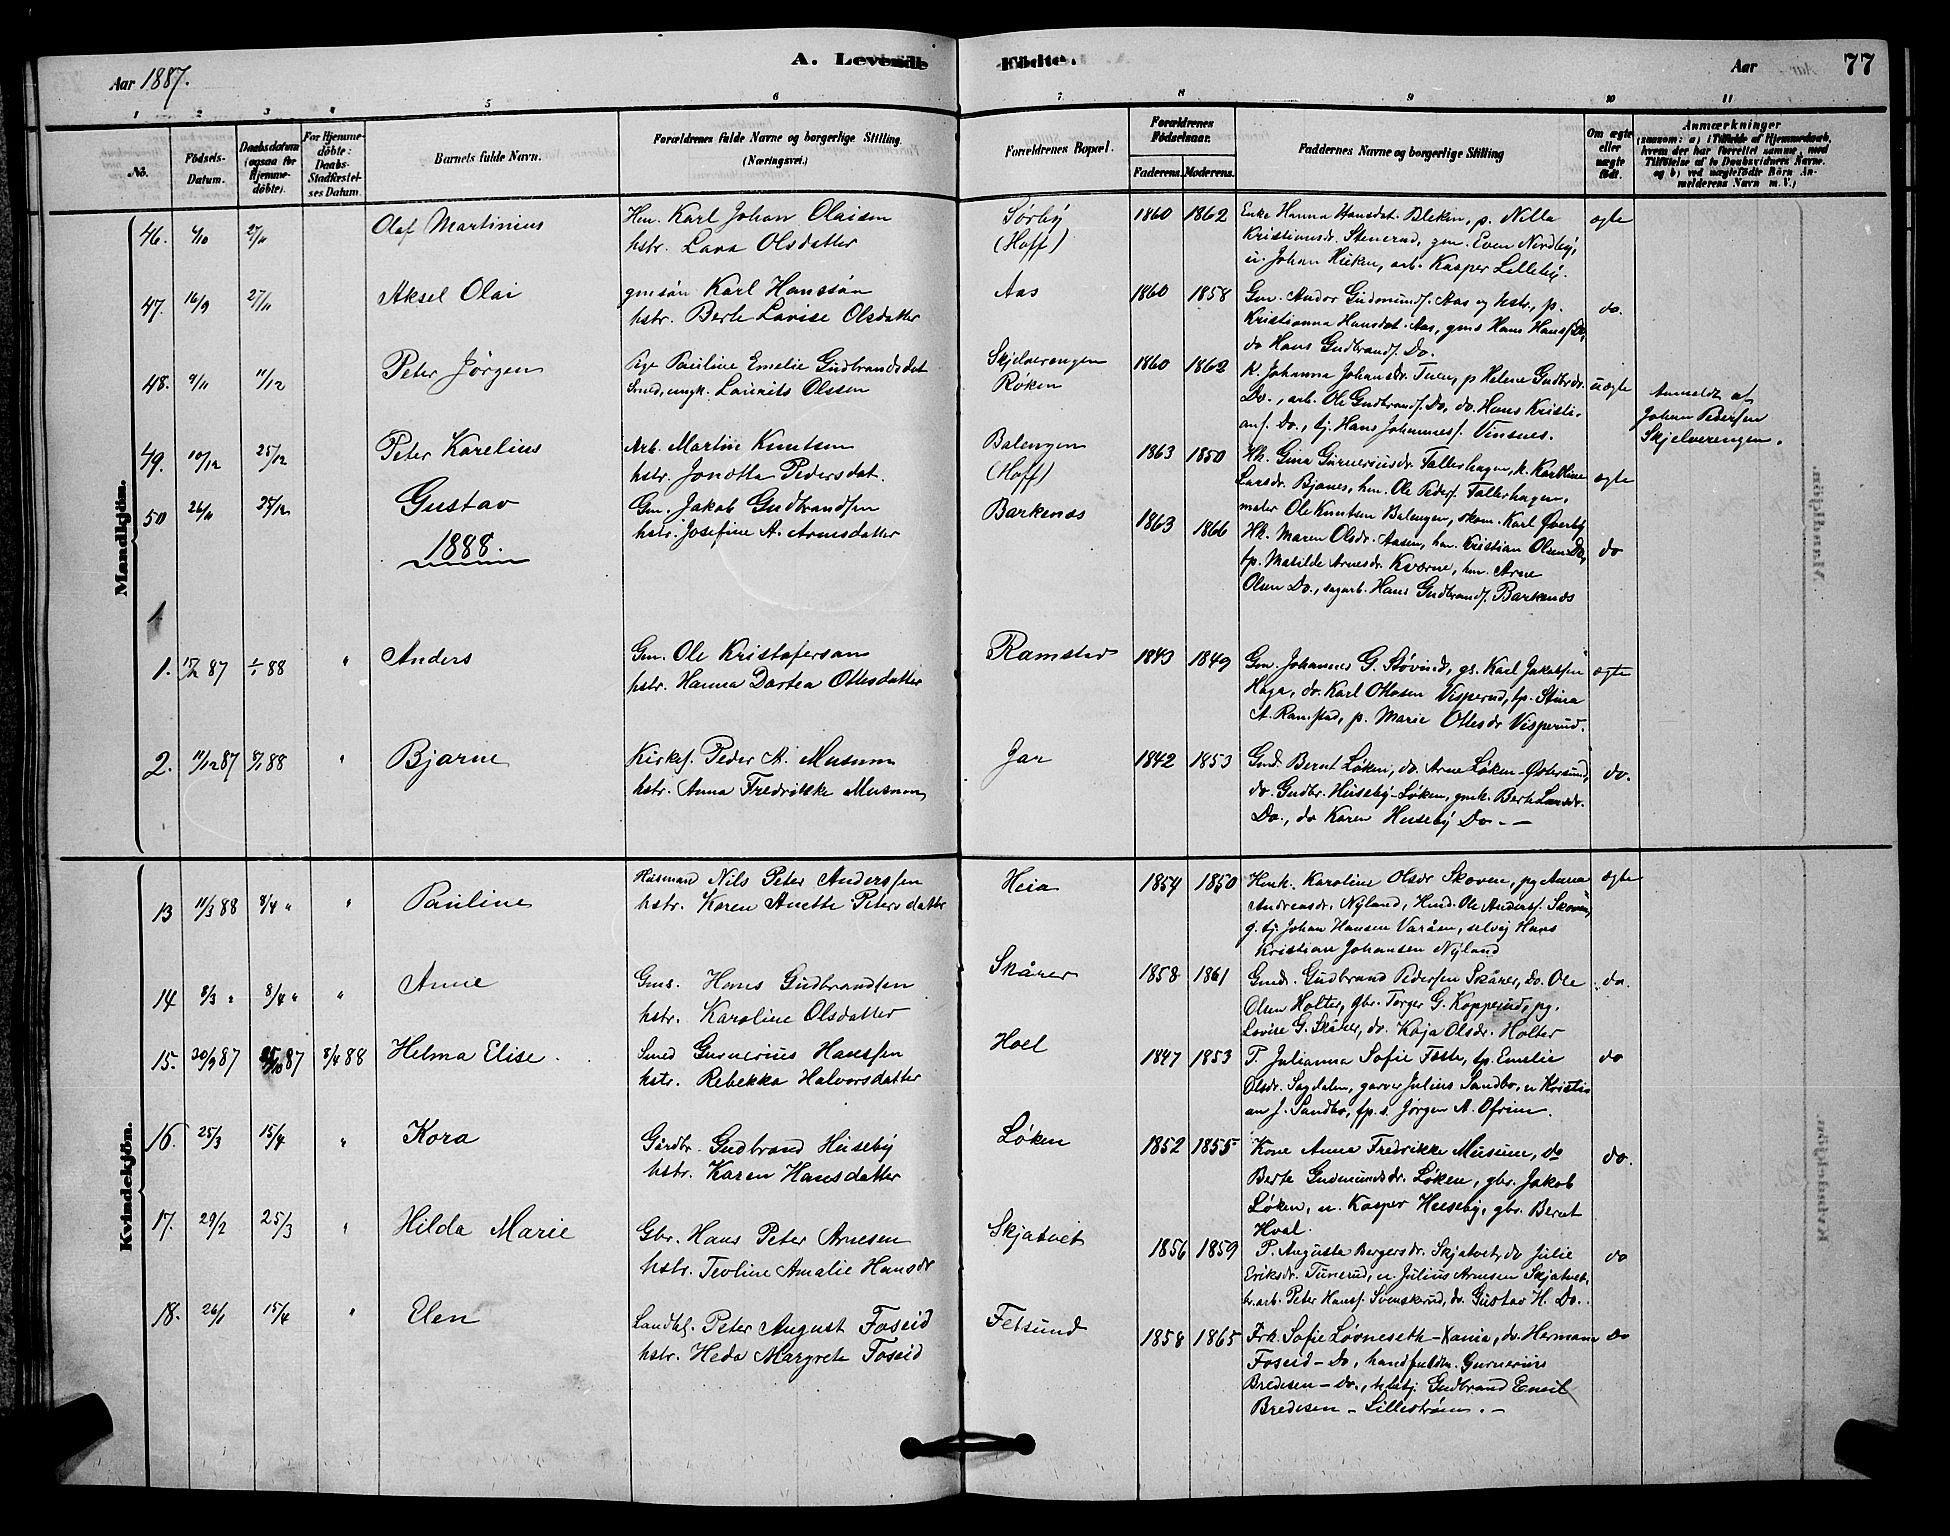 Aar 1887.
A. Levende Fødte.
Aar
77
1 2 3 4 5 6 7 8 9 10 11
No.
Fødsels-Datum.
Daabsdatum (ogsaa for Hjemmedøbte).
For Hjemmedøbte: Daabs-Stadfæstelses Datum.
Barnets fulde Navn.
Forældrenes fulde Navne og borgerlige Stilling. (Næringsvei.)
Forældrenes Bopæl.
Forældrenes Fødselsaar.
Faderens. Moderens.
Faddernes Navne og borgerlige Stilling
Om ægte eller uægte født.
Anmærkninger
(saasom: a) i Tilfælde af Hjemmedaab, hvem der har forrettet samme, med Tilføielse af to Daabsvidners Navne. og b) ved uægtefødte Børn Anmelderens Navn m. V.)
Mandkjøn.
46. 4/10 27/11 Olaf Martinius
Hm. Karl Johan Olaisen
hstr. Lava Olsdatter
Sørby
(Hoff)
1860 1862
Enke Hanna Hansdat. Blekin, p. Nella
Kristiansdr. Stenerud, gm. Even Nordby,
u. Johan Hieken, arb. Kasper Lilleby.
ægte
47. 16/9 27/11 Aksel Olai
gmsøn Karl Hanssøn
hstr. Berte Lovise Olsdatter
Aas
1860 1858
Gm. Andor Gudmundf. Aas og hstr., p.
Kristianna Hansdat. Aas, gms Hans Hansf. Do,
do Hans Gudbrandf. Do.
do.
48. 9/11 11/12 Peter Jørgen
Pige Pauline Emelie Gudbrandsdat
Smed, ungk. Laurits Olssen
Skjelverengen
Røken
1860 1862
K. Johanna Johansdr. Tuen, p Helene Gudbrdr.
Do., arb. Ole Gudbrandf. Do, do. Hans Kristi-
anf. Do., tj. Hans Johannesf. Vinsnes.
uægte
Anmeldt af
Johan Pedersen
Skjelverengen.
49. 10/12 25/12 Peter Karelius
Arb. Martin Knutsen
hstr. Jonetta Pedersdat.
Balengen
(Hoff)
1863 1850
Hk. Gina Gurneriusdr. Fallerhagen, k. Karoline
Larsdr. Bjanes, hm. Ole Pedersf. Fallerhagen,
maler Ole Knutsen Balengen, skom. Karl Øverby
ægte
50 26/11 25/12 Gustav
Gm. Jakob Gudbrandsen
hstr. Josefine A. Arnesdatter
Barkenæs
1863 1866
Hk. Maren Olsdr. Aasen, hm. Kristian Olsen Do,
tp. Matilde Arnesdr. Kværne, hm. Arne
Olsen Do., sagarb. Hans Gudbrandf. Barkenæs
do
1888.
1. 87 1/1 88 " Anders
Gm. Ole Kristofersen
hstr. Hanna Dortea Ottesdatter
Ramstad
1843 1849
Gm. Johannes G. Støvind, gs. Karl Jakobsen
Haga, do. Karl Ottesen Visperud, tp. Stina
A. Ramstad, p. Marie Ottesdr Visperud.
ægte
2. 11/12 87 8/1 88 " Bjarne
Kirkes. Peder A. Museum
hstr. Anna Fredrikke Museum
Jar
1842 1853
Gmd. Bernt Løken, do. Arne Løken-Østersund,
do. Gudbr. Huseby-Løken, gmk. Berte Larsdr.
Do., do Karen Huseby Do. -
do.
Kvindekjøn.
13 11/3 88 8/4 " " Pauline
Husmand Nils Peter Anderssen
hstr. Karen Anette Petersdatter
Heia
1854 1850
Hmk. Karoline Olsdr Skoven, pg Anna
Andreasdr. Nyland, Hmd. Ole Andersf. Skoven,
g. tj. Johan Hansen Varåen, selvej Hans
Kristian Johansen Nyland
ægte
14 8/3 " 8/4 " " Anne
Gms. Hans Gudbrandsen
hstr. Karoline Olsdatter
Skårer
1858 1861
Gmd. Gudbrand Pedersen Skårer, do. Ole
Olsen Holter, gbr. Torger G. Kopperud, pg.
Lovise G. Skårer, do. Kaja Olsdr. Holter
do.
15. 20/9 87 25/10 87 8/4 88 Helma Elise
Smed Gurnerius Hanssen
hstr. Rebekka Halvorsdatter
Hoel
1847 1853
P. Julianna Sofie Foss, tp. Emelie
Olsdr. Sagdalen, garver Julius Sandbo, u Kristi-
an J. Sandbo, fp.s. Jørgen A. Ofrim.
do
16. 25/3 15/4 " Kora
Gårdbr. Gudbrand Huseby
hstr. Karen Hansdatter
Løken
1852 1855
Kone Anna Fredrikke Museum, do
Berte Gudmundsdr. Løken, gbr. Jakob
Løken, u. Kasper Huseby, gbr. Bernt
Hval.
do.
17. 29/2 25/3 " Hilda Marie
Gbr. Hans Peter Arnesen
hstr. Teoline Amalie Hansdr
Skjatvet
1856 1859
P. Augusta Bergersdr. Skjatvet, do Julie
Eriksdr. Tunerud, u. Julius Arnesen Skjatvet,
br.arb. Peter Hansf. Svenskerud, do. Gustav H. Do.
do
18. 26/1 15/4 " Elen
Landhl. Peter August Foseid
hstr. Heda Margrete Foseid
Fetsund
1858 1865
Frk. Sofie Løvneseth-Xania, do. Herman
Foseid - Do, handfuldm. Gurnerius
Bredesen - do., hdsbj. Gudbrand Emil
Bredesen - Lillestrøm. -
do